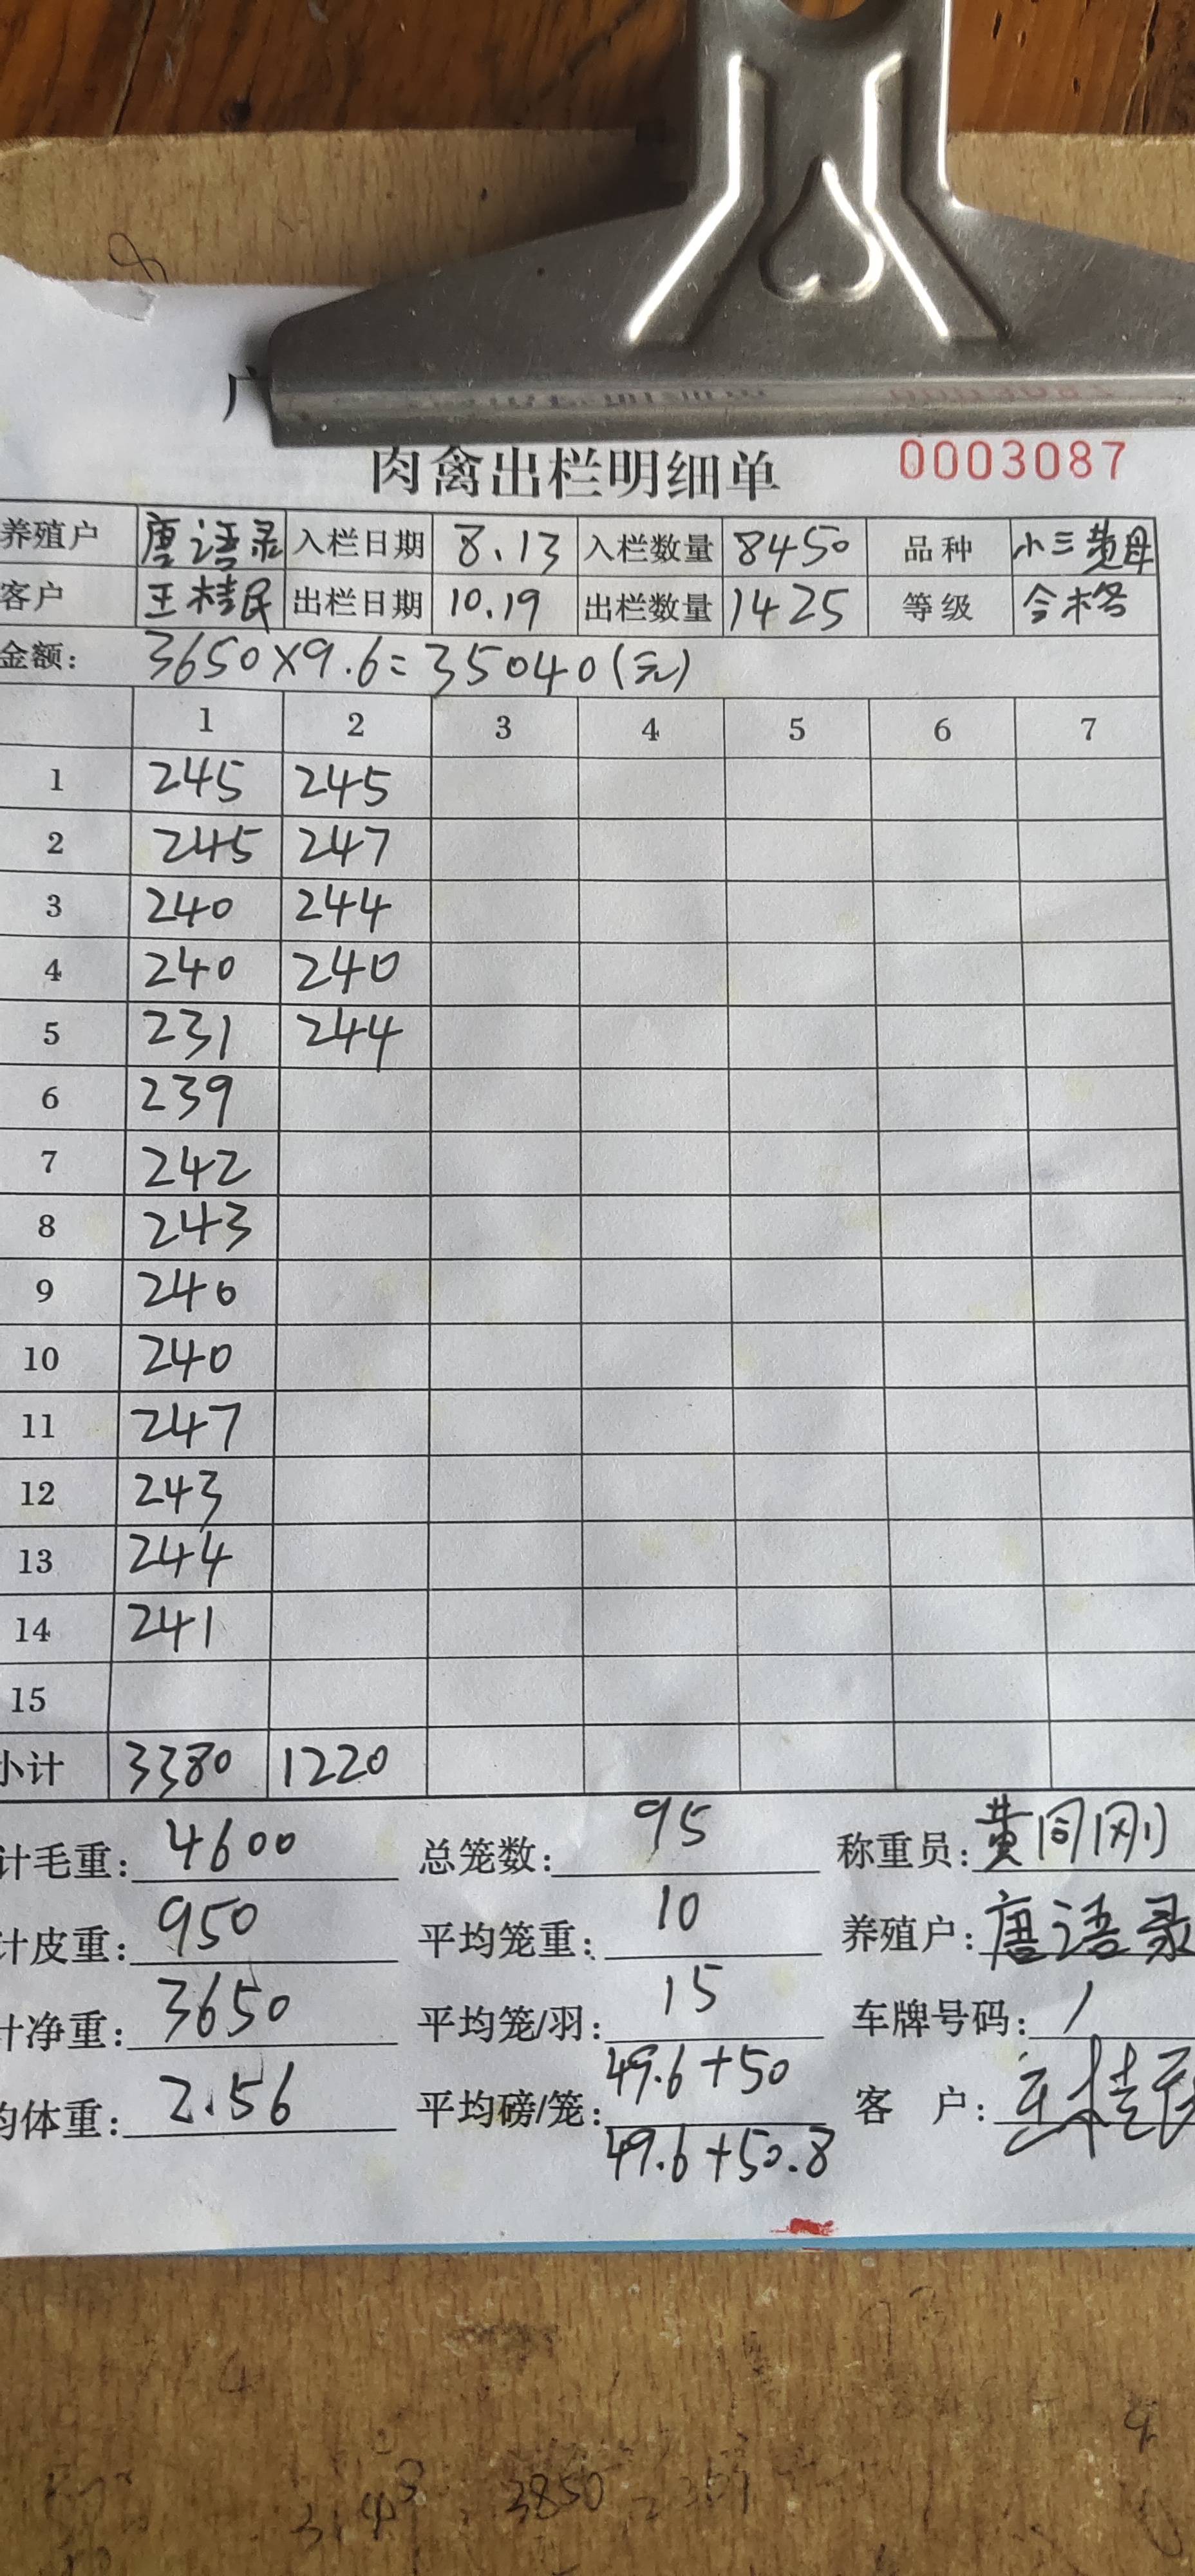 广
肉禽出栏明细单 0003087
养殖户 唐语录 入栏日期 8.13 入栏数量 8450 品种 小三黄母
客户 王桂民 出栏日期 10.19 出栏数量 1425 等级 合格
金额: 3650×9.6=35040(元)
1 2 3 4 5 6 7
1 245 245
2 245 247
3 240 244
4 240 240
5 231 244
6 239
7 242
8 243
9 240
10 240
11 247
12 243
13 244
14 241
15
小计 3380 1220
计毛重: 4600 总笼数: 95 称重员: 黄同刚
计皮重: 950 平均笼重: 10 养殖户: 唐语录
计净重: 3650 平均笼/羽: 15 车牌号码: /
均体重: 2.56 平均磅/笼: 49.6+50 客户: 王桂民
49.6+50.8
3850